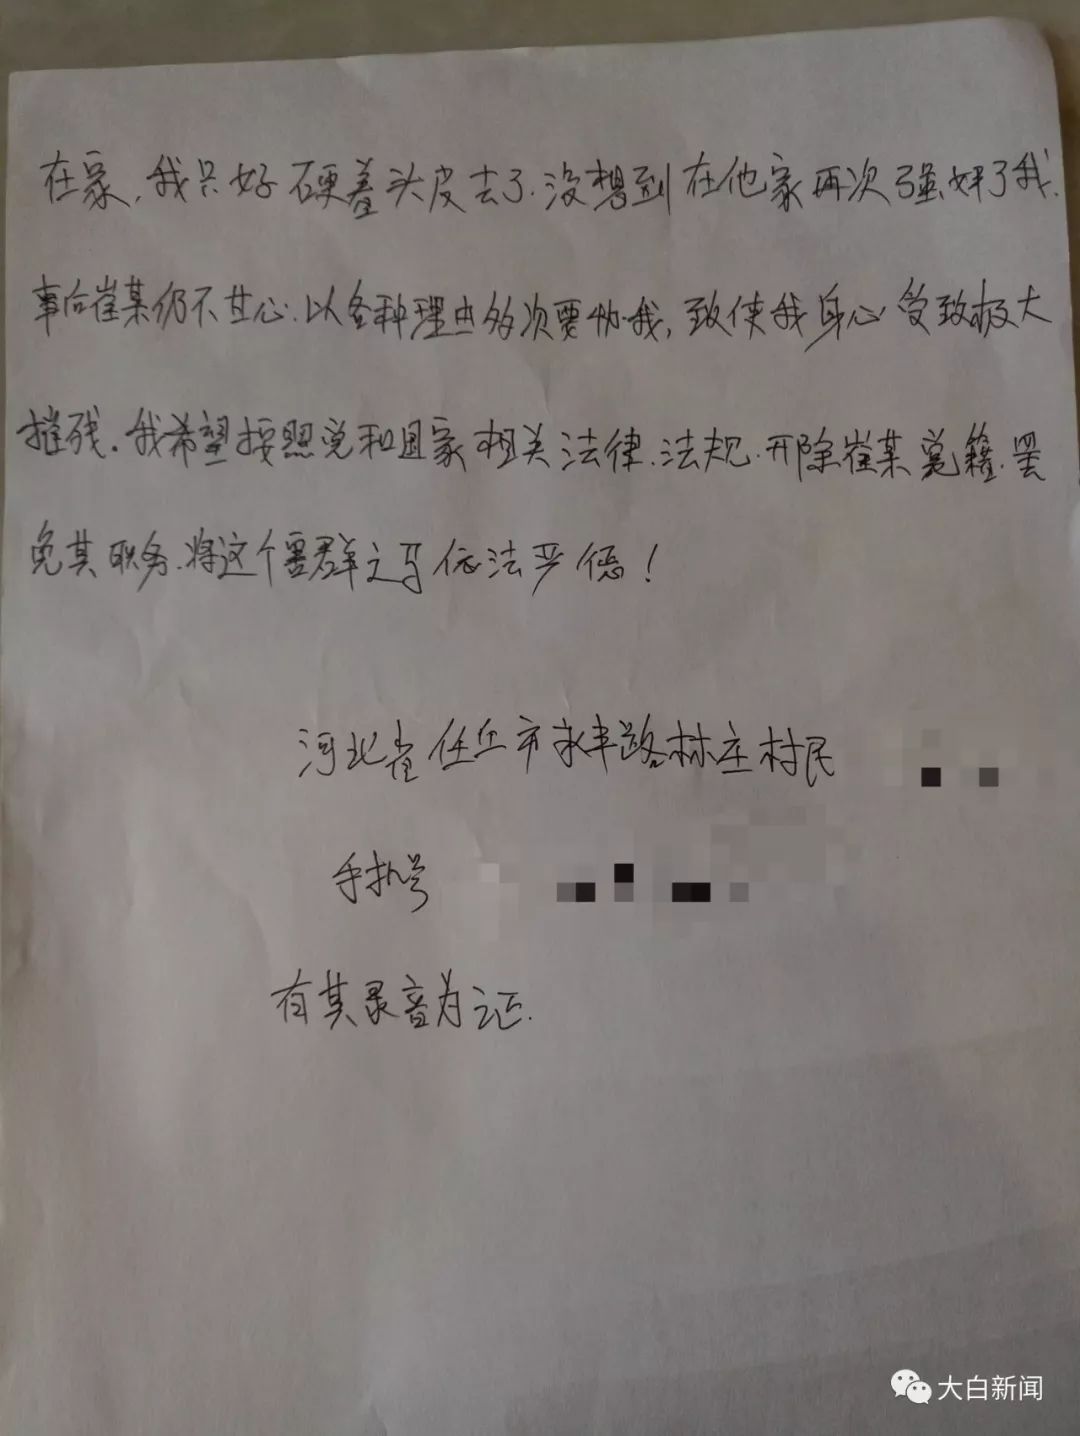 在家，我只好硬着头皮去了.没想到在他家再次强奸了我.
事后崔某仍不甘心.以各种理由多次要胁我，致使我身心受致极大
摧残.我希望按照党和国家相关法律.法规.开除崔某党籍.罢
免其职务.将这个害群之马依法严惩！
河北省任丘市永丰路林庄村民
手机号
有其录音为证.
大白新闻